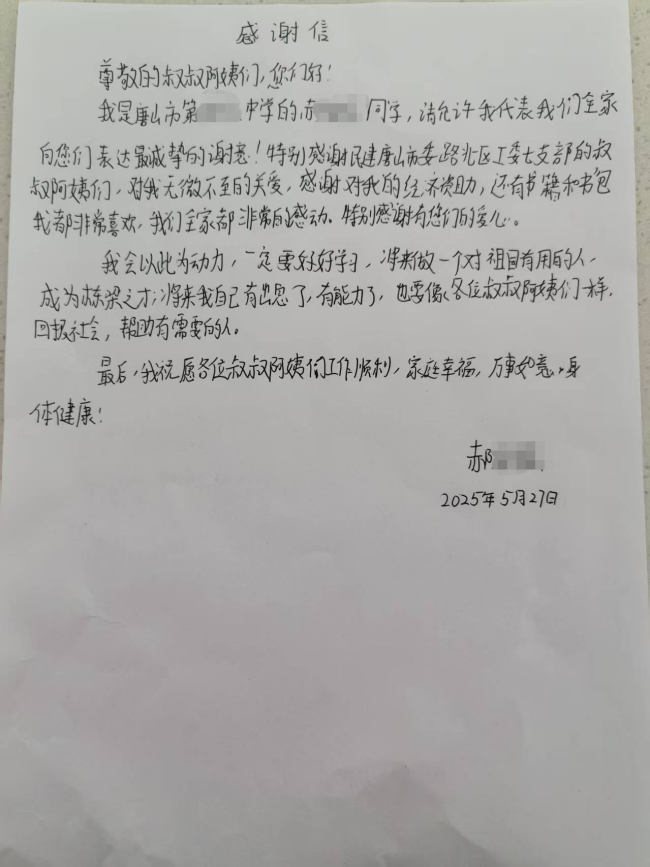 感谢信
尊敬的叔叔阿姨们，您们好！
我是唐山市第 中学的郝 同学，请允许我代表我们全家
向您们表达最诚挚的谢意！特别感谢民建唐山市委路北区工委七支部的叔
叔阿姨们，对我无微不至的关爱，感谢对我的经济资助，还有书籍和书包
我都非常喜欢，我们全家都非常的感动。特别感谢有您们的爱心。
我会以此为动力，一定要好好学习，将来做一个对祖国有用的人，
成为栋梁之才；将来我自己有出息了，有能力了，也要像各位叔叔阿姨们一样，
回报社会，帮助有需要的人。
最后，我祝愿各位叔叔阿姨们工作顺利，家庭幸福，万事如意，身
体健康！
郝
2025年5月27日